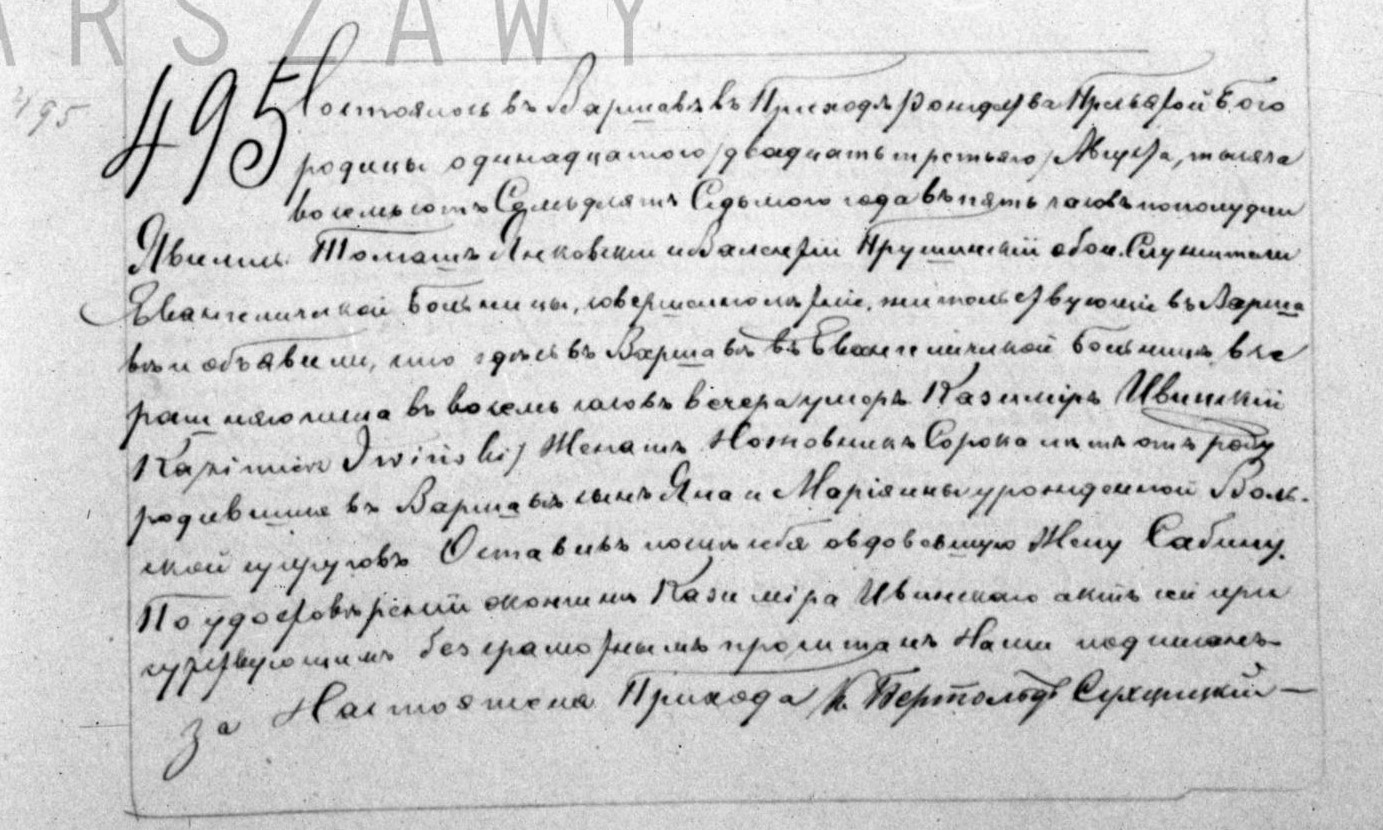 ARSZAWY
495
495 Состоялось въ Варшавѣ въ Приходѣ Рождества Пресвятой Бого
родицы одинадцатого /двадцать третьяго/ Августа, тысяча
восемьсотъ Семьдесятъ Седьмого года въ пять часовъ пополудни
Явились Томашъ Янковскій и Валентій Прушинскій обои Служители
Евангелической больницы, совершеннолѣтніе, жительствующіе въ Варша
вѣ и объявили, что здѣсь въ Варшавѣ въ Евангелической больницѣ вче
рашняго числа въ восемь часовъ вечера умеръ Казимиръ Ивинскій
Kazimierz Iwiński/ Женатъ Сорока лѣтъ отъ роду
родившійся въ Варшавѣ сынъ Яна и Маріянны урожденной Воль-
ской супруговъ Оставивъ послѣ себя овдовевшую Жену Сабину.
По удостовѣреніи кончины Казиміра Ивинскаго актъ сей при
сутствующимъ безграмотнымъ прочитанъ Нами подписанъ
За Настоятеля Прихода К. Бертольдъ